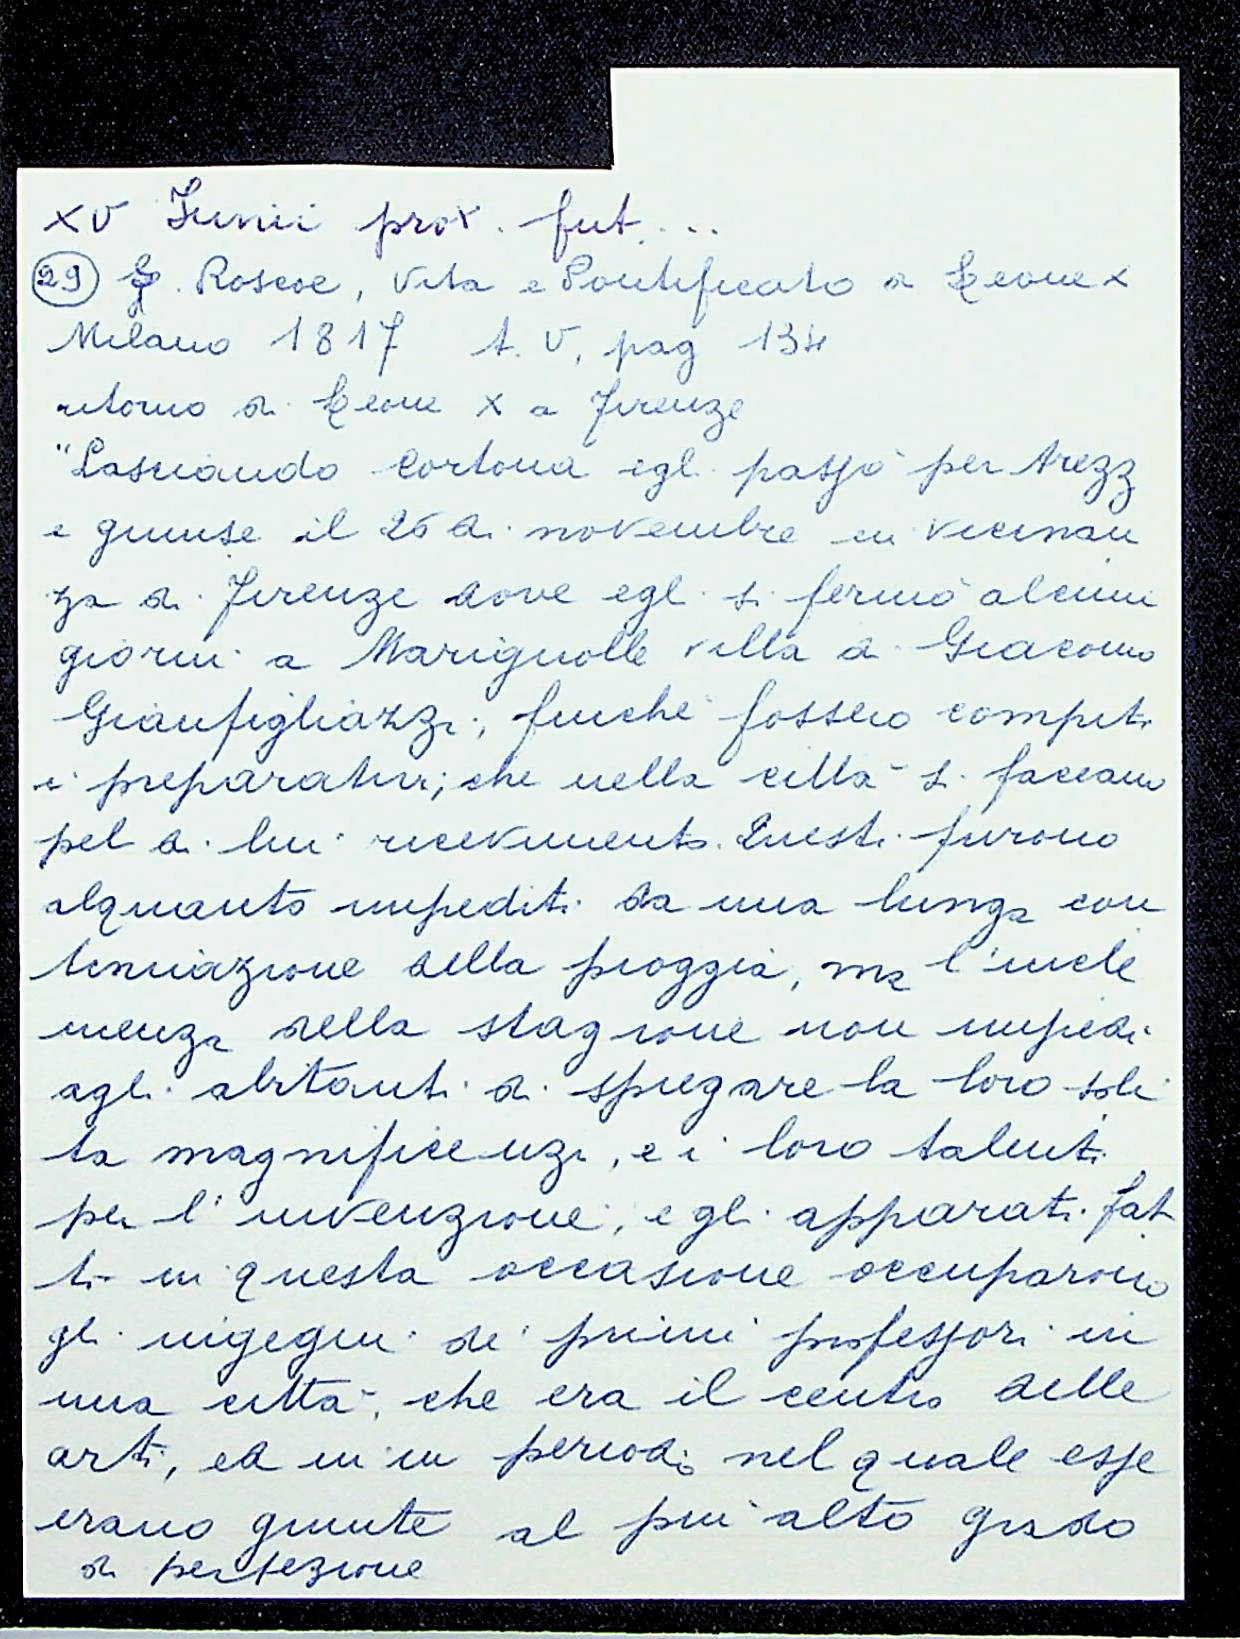 XV Junii prox. fut....
29 G. Roscoe, Vita e Pontificato di Leone X
Milano 1817 t. V, pag 134
ritorno di Leone X a Firenze
"Lasciando Cortona egli passò per Arezz
e giunse il 26 di novembre in vicinan
za di Firenze dove egli si fermò alcuni
giorni a Marignolle villa di Giacomo
Gianfigliazzi, finchè fossero compiti
i preparativi; che nella città si faceano
pel di lui ricevimento. Questi furono
alquanto impediti da una lunga con
tinuazione della pioggia, ma l'incle
menza della stagione non impedì
agli abitanti di spiegare la loro soli
ta magnificenza, e i loro talenti
per l'invenzione, e gli apparati fat
ti in questa occasione occuparono
gli ingegni dei primi professori in
una città, che era il centro delle
arti, ed in un periodo nel quale esse
erano giunte al più alto grado
di perfezione